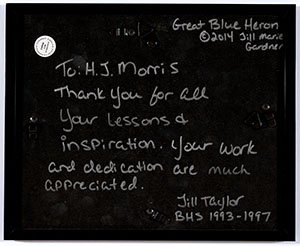 Great Blue Heron
©2014 Jill Marie
Gardner
To: H.J. Morris
Thank You for all
Your Lessons &
inspiration. Your work
and dedication are much
appreciated.
Jill Taylor
BHS 1993-1997